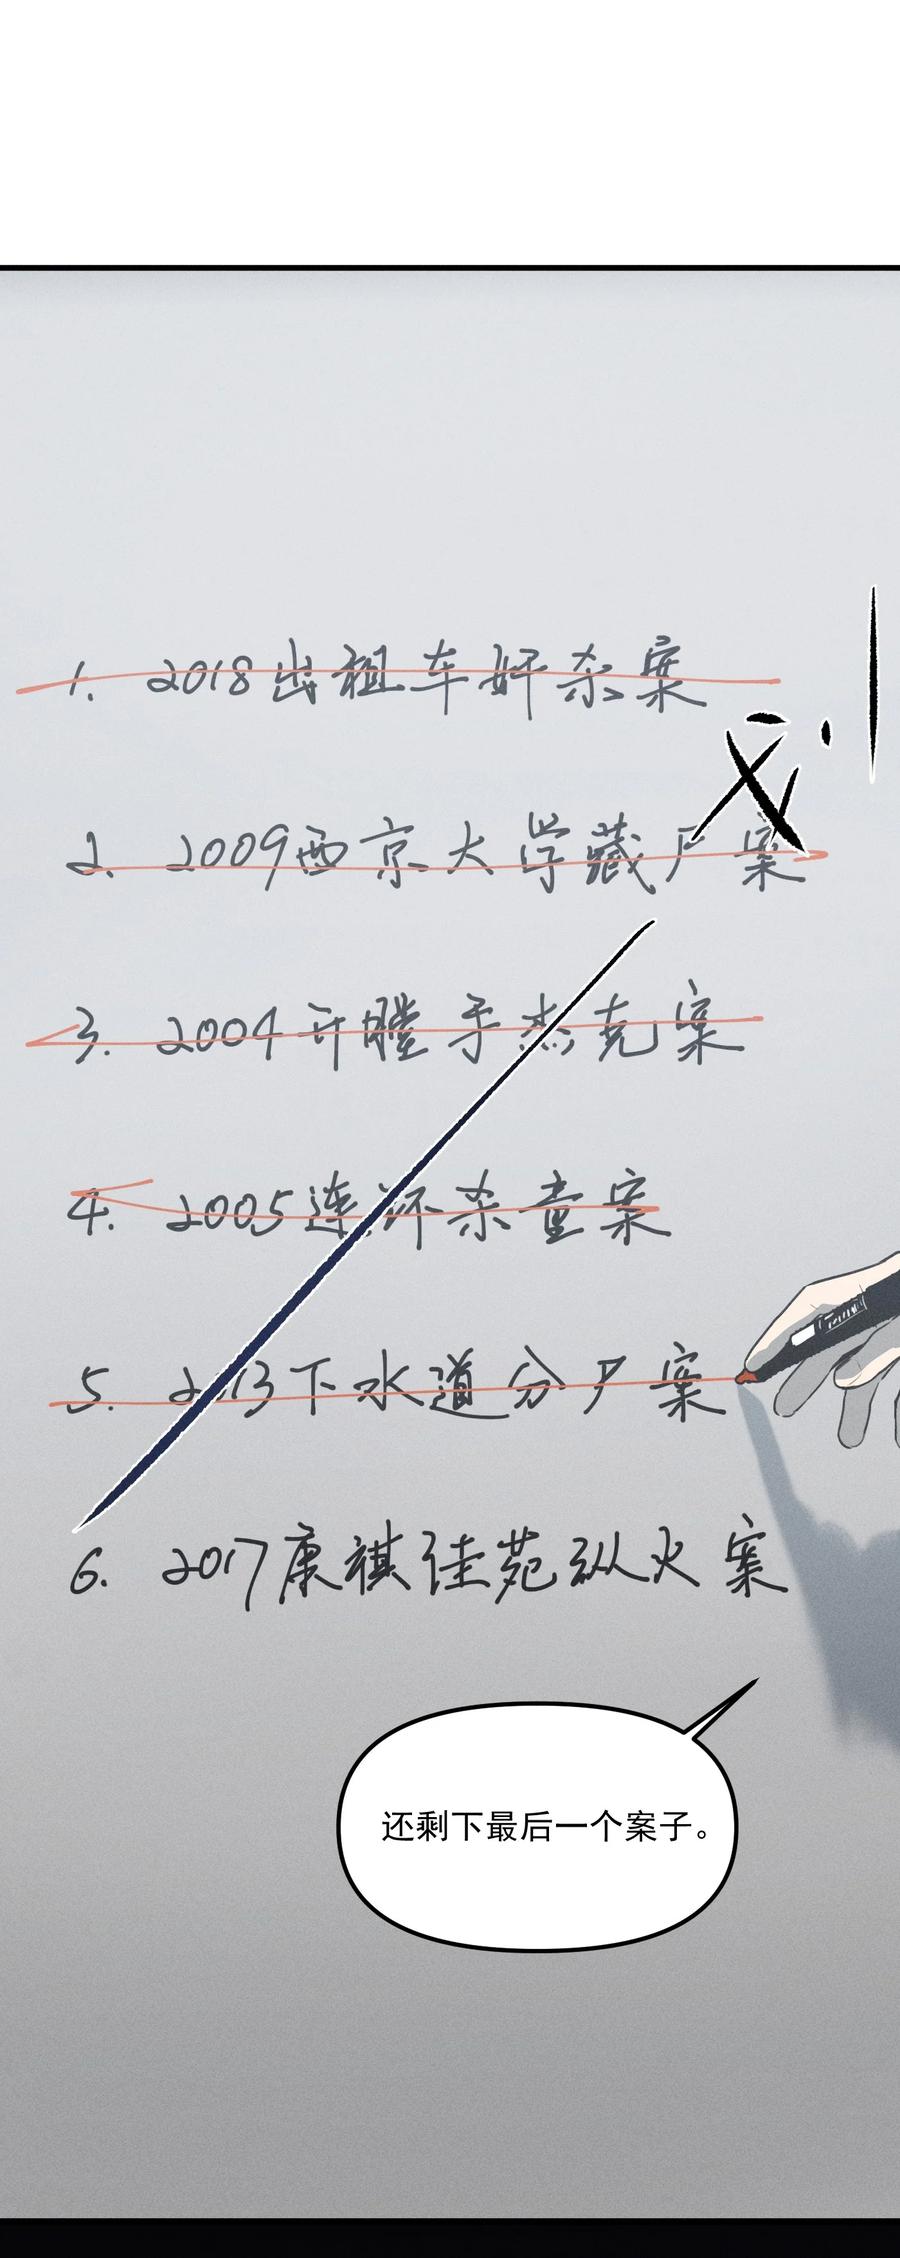 1. 2018出租车奸杀案
2. 2009西京大学藏尸案
3. 2004开膛手杰克案
4. 2005连环杀童案
5. 2013下水道分尸案
6. 2017康祺佳苑纵火案
还剩下最后一个案子。